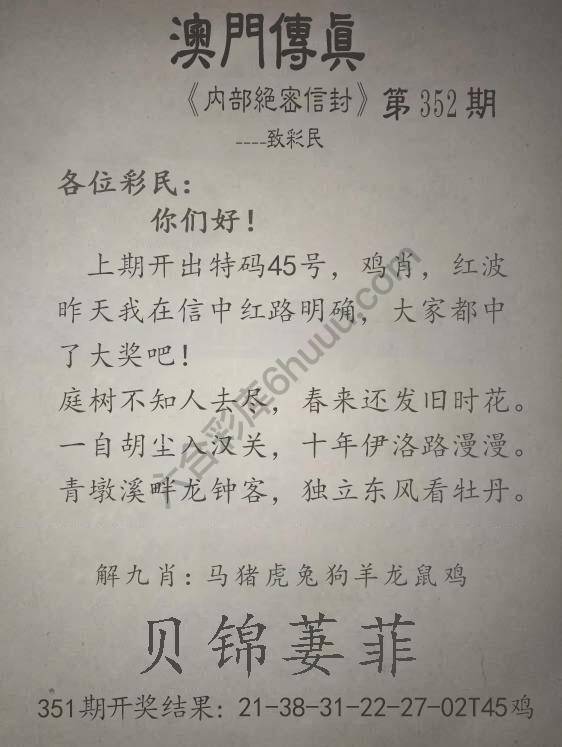 澳門傳眞
《内部絕密信封》第352期
----致彩民
各位彩民:
你们好!
上期开出特码45号，鸡肖，红波
昨天我在信中红路明确，大家都中
了大奖吧!
庭树不知人去尽，春来还发旧时花。
一自胡尘入汉关，十年伊洛路漫漫。
青墩溪畔龙钟客，独立东风看牡丹。
六合彩库6huuu.com
解九肖:马猪虎兔狗羊龙鼠鸡
贝锦萋菲
351期开奖结果:21-38-31-22-27-02T45鸡